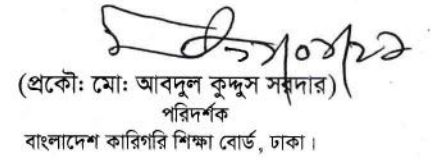 (প্রকৌ: মো: আবদুল কুদ্দুস সরদার)
পরিদর্শক
বাংলাদেশ কারিগরি শিক্ষা বোর্ড, ঢাকা।